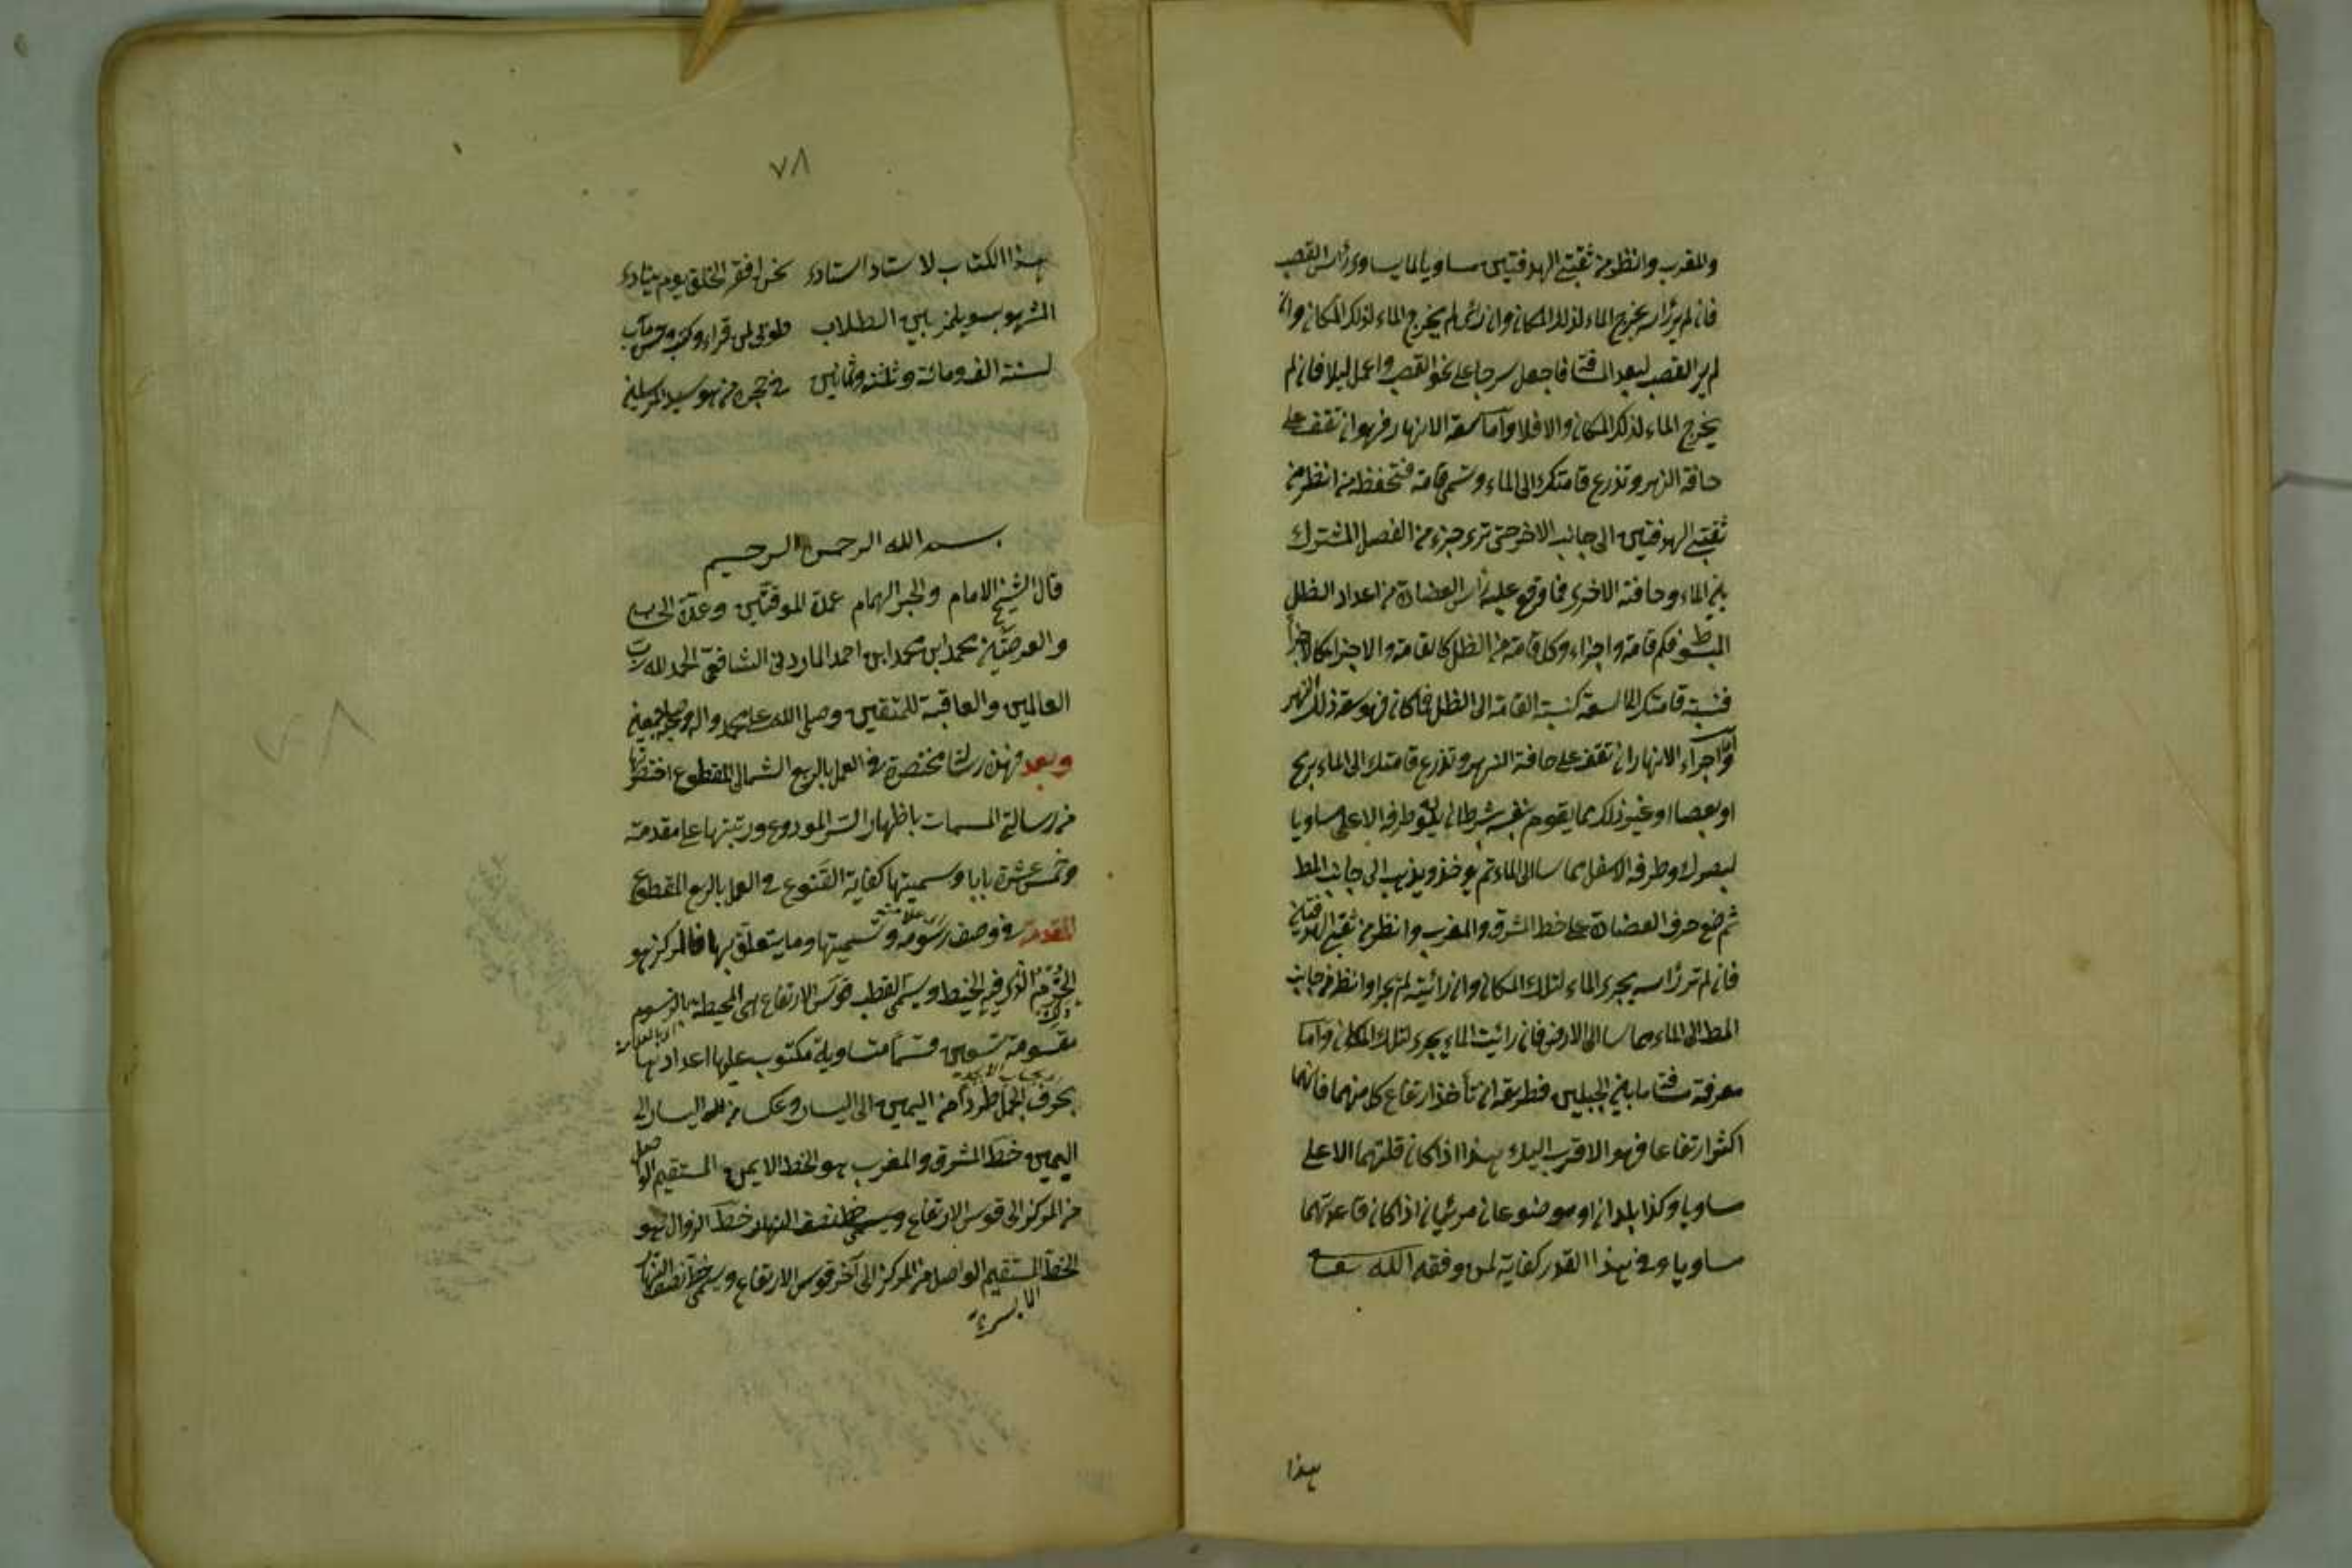 والمغرب وانظر من ثقبتي الهدفتين مساويا لما يساوي رأس القصب
فان لم ير رأسه يخرج الماء لذلك المكان وان رائى لم يخرج الماء لذلك المكان وان
لم ير القصب لبعد المسافة فاجعل سرجا على نحو القصب واعمل ليلا فان لم
يخرج الماء لذلك المكان والا فلا واما سعة الانهار فهو ان تقف على
حافة النهر وتذرع قامتك الى الماء وتسمى قامة فتحفظه ثم انظر من
ثقبتي الهدفتين الى جانب الاخر حتى ترى جزء من الفصل المشترك
بين الماء وحافته الاخرى فما وقع عليه رأس العضادة من اعداد الظل
المبسوط فكم قامة واجزاء وكل قامة من الظل كالقامة والاجزاء كالاجزاء
فنسبة قامتك الى السعة كنسبة القامة الى الظل فما كان فهو سعة ذلك النهر
واما اجراء الانهار ان تقف على حافة النهر وتذرع قامتك الى الماء برمح
او بعصا او غير ذلك مما يقوم بنفسه شرط ان يكون طرفه الاعلى مساويا
لبصرك وطرفه الاسفل مماسا الى الماء ثم يوخذ ويذهب الى جانب المط
ثم ضع حرف العضادة على خط المشرق والمغرب وانظر من ثقبتي الهدفتين
فان لم تر رأسه يجرى الماء لتلك المكان وان رائيته لم يجر او انظر من جانب
المط الى الماء ومماسا الى الارض فان رائيت الماء يجرى لتلك المكان واما
معرفة مسافة ما بين الجبلين فطريقه ان تأخذ ارتفاع كل منهما فايهما
اكثر ارتفاعا فهو الاقرب اليك هذا اذا كان قلتهما الاعلى
مساويا وكذا بلدان او موضوعان مرئيان اذا كان قاعدتهما
مساويا وفي هذا القدر كفاية لمن وفقه الله تعا
هذا
٧٨
هذا الكتاب لاستاد استاد نحن افقر الخلق يوم ينادى
المشهور بين الطلاب طوبى لمن قراء وكتب وحسن مآب
لسنة الف ومائة وثلثة وثمانين من هجرة من هو سيد المرسلين
بسم الله الرحمن الرحيم
قال الشيخ الامام والحبر الهمام عمدة الموقتين وعمدة الحساب
والفرضيين محمد ابن محمد ابن احمد المارديني الشافعي الحمد لله رب
العالمين والعاقبة للمتقين وصلى الله على محمد واله وصحبه اجمعين
وبعد فهذه رسالة مختصرة في العمل بالربع الشمالي المقطوع اختصرتها
من رسالتي المسمات باظهار السر المودوع ورتبتها على مقدمة
وخمس عشرة بابا وسميتها كفاية القنوع في العمل بالربع المقطوع
المقدمة في وصف رسومه وتسميتها وما يتعلق بها فالمركز هو
الخرم الذي فيه الخيط ويسمى القطب قوس الارتفاع هي المحيطة بالرسوم
مقسومة تسعين قسما متساوية مكتوب عليها اعدادها
بحساب الابجد
بحرف الجمل طردا من اليمين الى اليسار وعكسا من اليسار الى
اليمين خط المشرق والمغرب هو الخط الايمن المستقيم الواصل
من المركز الى قوس الارتفاع خط الزوال هو
الخط المستقيم الواصل من المركز الى آخر قوس الارتفاع ويسمى خط نصف النهار
الايسر
٧٨